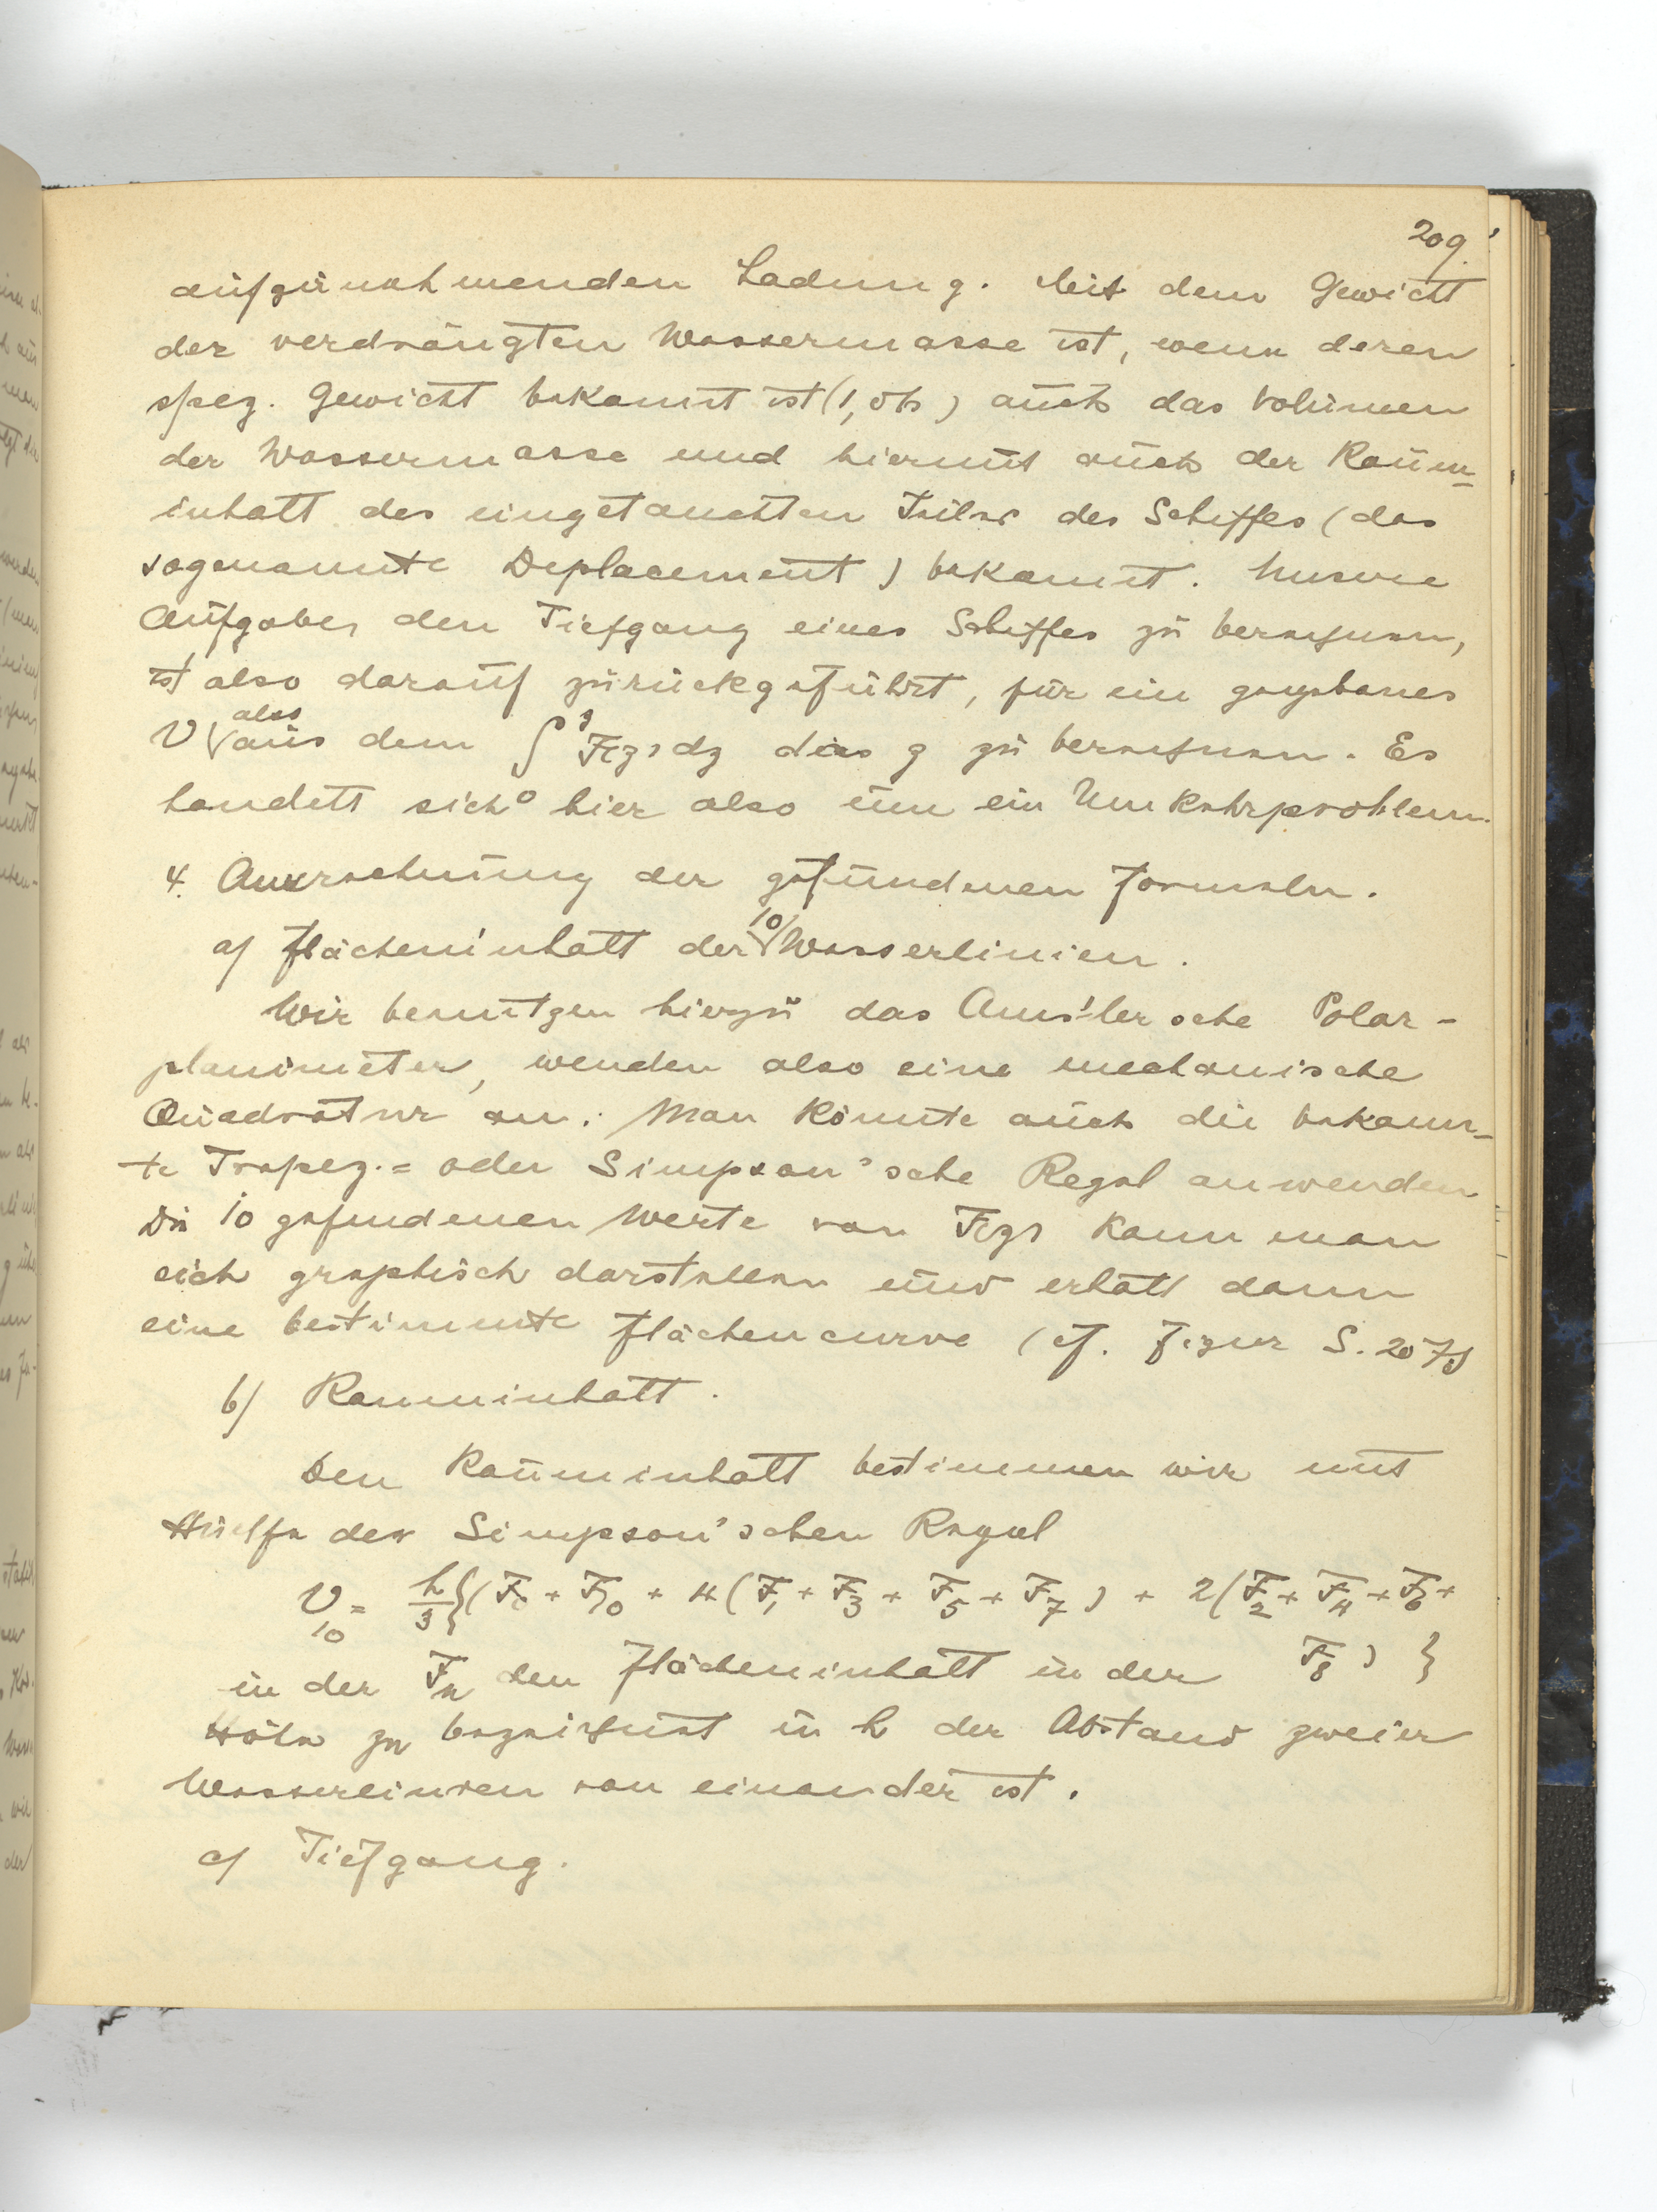 209.
aufzunehmenden Ladung. Mit dem Gewicht
der verdrängten Wassermasse ist, wenn deren
spez. Gewicht bekannt ist ( ) auch das Volumen
der Wassermasse und hiermit auch der Raum-
inhalt des eingetauchten Teiles des Schiffes (das
sogenannte Deplacement) bekannt. Unsere
Aufgabe, den Tiefgang eines Schiffes zu berechnen,
ist also darauf zurückgeführt, für ein gegebenes
V also aus dem ∫₀ᶻ F(z) dz das z zu berechnen. Es
handelt sich hier also um ein Umkehrproblem.
4. Ausrechnung der gefundenen Formeln.
a) Flächeninhalt der 10 Wasserlinien.
Wir benutzen hierzu das Amsler'sche Polar-
planimeter, wenden also eine mechanische
Quadratur an. Man könnte auch die bekann-
te Trapez= oder Simpson'sche Regel anwenden
Die 10 gefundenen Werte von F(z) kann man
sich graphisch darstellen und erhält dann
eine bestimmte Flächencurve (cf. Figur S. 207)
b) Rauminhalt.
Den Rauminhalt bestimmen wir mit
Hülfe der Simpson'schen Regel
V₁₀ = h/3 {(F₀ + F₁₀ + 4(F₁ + F₃ + F₅ + F₇) + 2(F₂ + F₄ + F₆ +
F₈)}
in der Fₙ den Flächeninhalt in der
Höhe zₙ bezeichnet u h der Abstand zweier
Wasserlinien von einander ist.
c) Tiefgang.